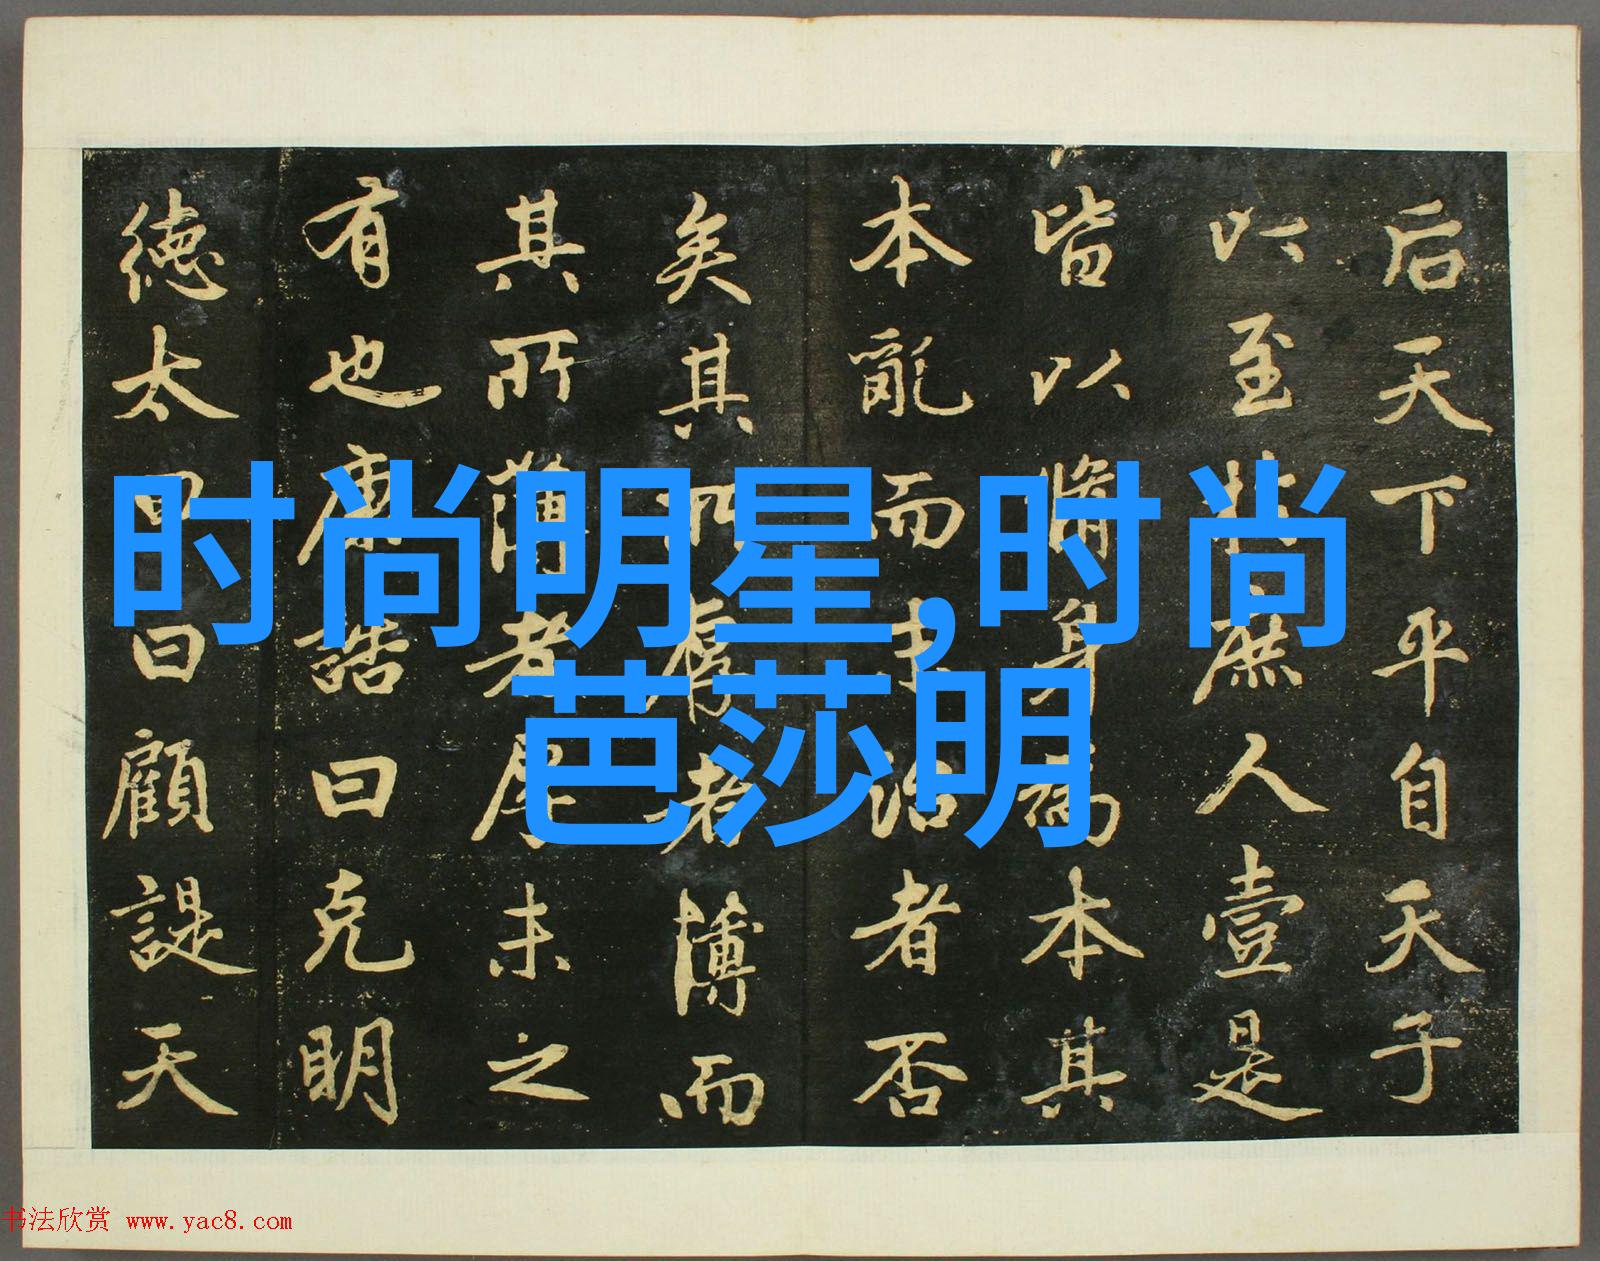 时尚明星,时尚
芭莎明
后天下平自天子
以至於庶人壹是
皆以脩身為本其
本亂而末治者否
矣其所厚者薄而
其所薄者厚未之
有也康誥曰克明
德太甲曰顧諟天
书法欣赏 www.yac8.com